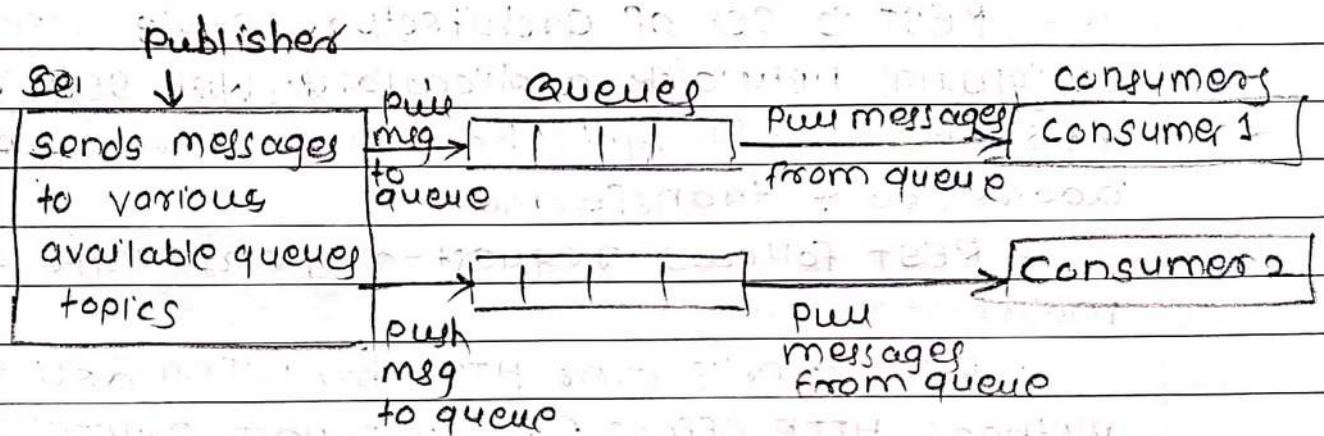 Publisher
Se
sends messages
to various
available queues
topics
Pull
msg
to
queue
Queues
Pull messages
from queue
Consumers
Consumer 1
Push
msg
to queue.
Pull
messages
from queue
Consumer 2